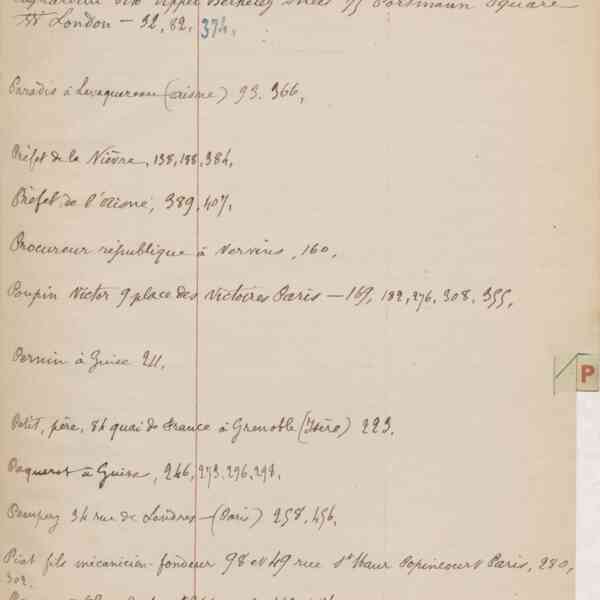 Upper Berkeley Street 75 Portsmann Square
London — 32, 82, 374,
Paradis à Levaquereau (aisne) 93. 366,
Préfet de la Nièvre, 138, 188, 384,
Préfet de l'aisne, 389, 407,
Procureur république à Vervins, 160,
Poupin Victor 9 place des Victoires Paris — 169, 182, 276, 308, 355,
Pernin à Guise 211,
Petit, père, 84 quai de France à Grenoble (Isère) 223,
Paquerot à Guise, 246, 273, 296, 298,
34 rue de Londres — (Paris) 258, 456,
Piat fils mécanicien-fondeur 98 et 49 rue St Maur Popincourt Paris, 280,
302.
P